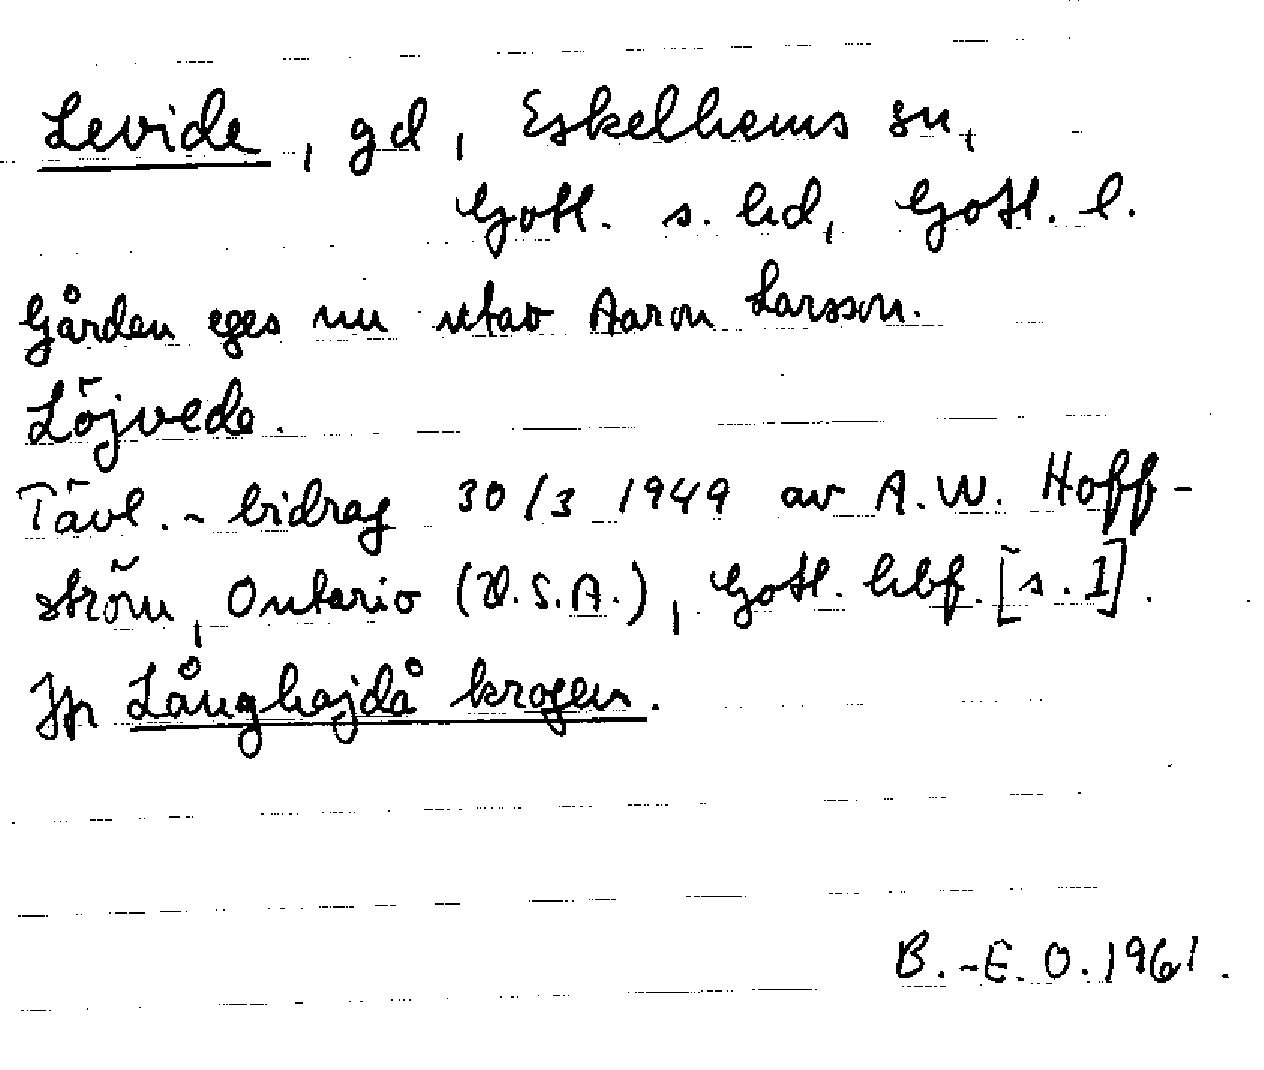 Levide, gd, Eskelhems sn,
Gotl. s. hd, Gotl. l.
Gården eges nu utav Aaron Larsson.
Löjvede.
Tävl.-bidrag 30/3 1949 av A.W. Hoff-
ström, Ontario (U.S.A.), Gotl. hbf. [s. 1].
Jfr Långhajdå krogen.
B.-E. O. 1961.